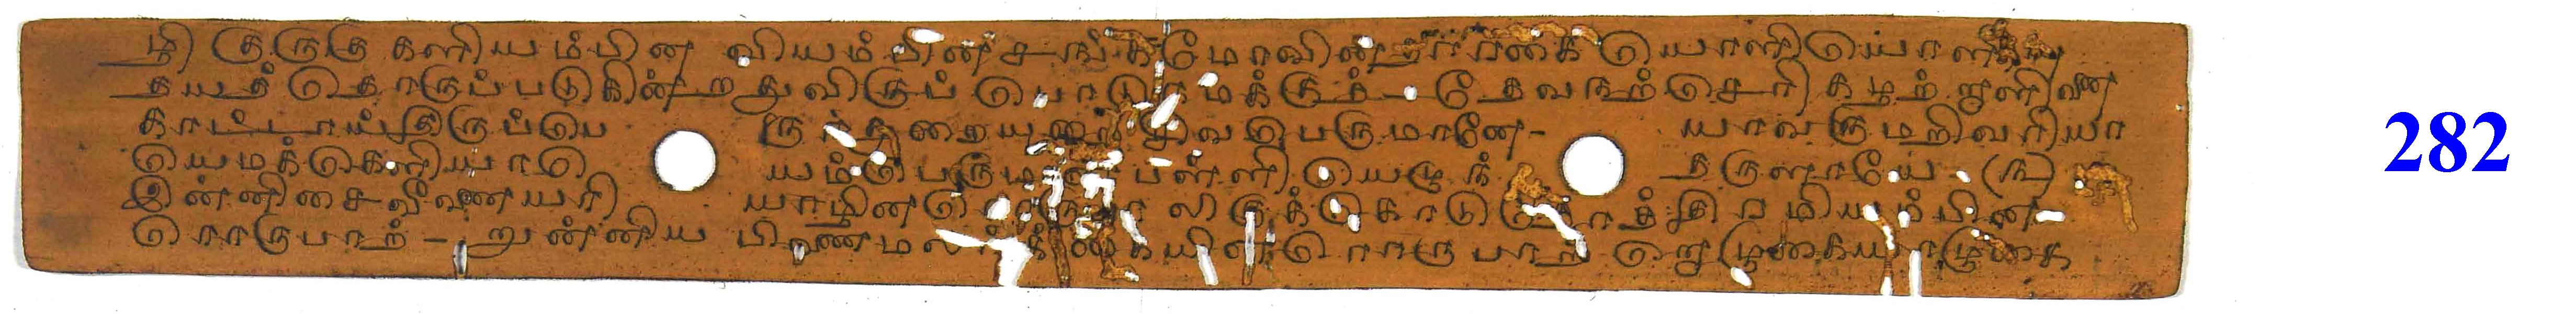 ழி குருகு களியம்பின வியம்பின சங்கமோவின தாரகை யொளியொளி
தயத் தொருப்படுகின்றது விருப் பொடு நமக்குத் – தேவநற்செறி கழற் றாளிணை
காட்டாய் திருப்பெ ருந்துறையுறை சிவபெருமானே – யாவருமறிவரியா
யெமக்கெளியாயெ யம்பெருமான் பள்ளி யெழுந் தருளாயே (௩)
இன்னிசைவீணையர் யாழினரொருபா லிருக்கொடு தோத்திர மியம்பின
ரொருபாற் – றுன்னிய பிணைமலர்க் கையினரொருபாற் றொழுகையரழுகை
282